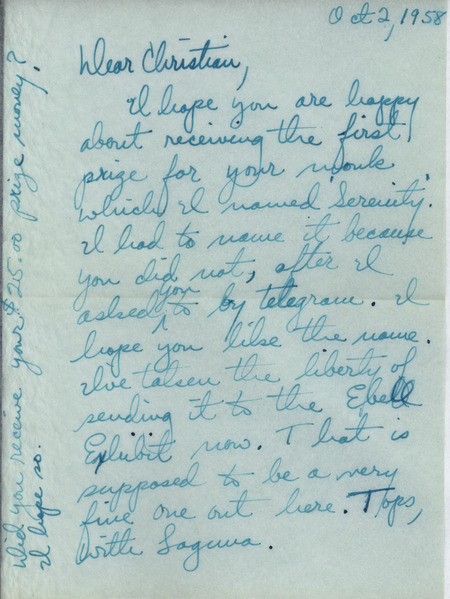 Oct 2, 1958
Dear Christian,
I hope you are happy
about receiving the first
prize for your monk
which I named "Serenity".
I had to name it because
you did not, after I
asked you to by telegram. I
hope you like the name.
I've taken the liberty of
sending it to the Ebell
Exhibit now. That is
supposed to be a very
fine one out here. Tops,
with Laguna.
Did you receive your $25.00 prize money?
I hope so.